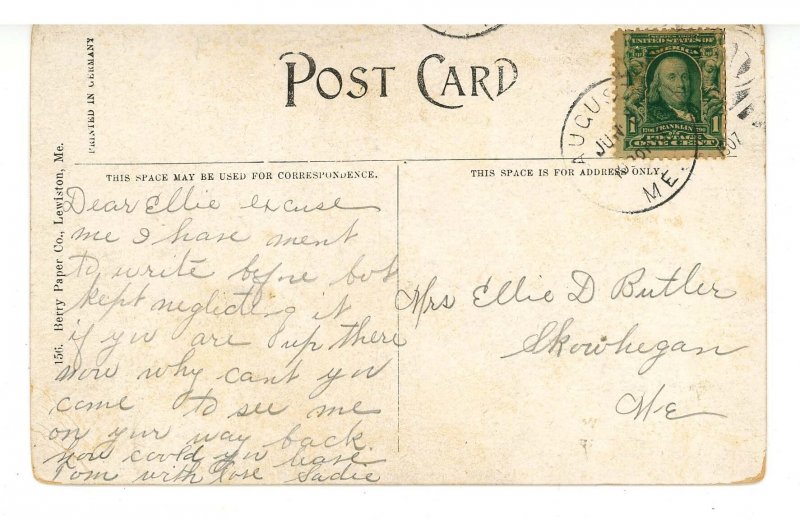 POST CARD
PRINTED IN GERMANY
156. Berry Paper Co., Lewiston, Me.
UNITED STATES OF
AMERICA
1706 FRANKLIN 1790
POSTAGE
1 ONE CENT 1
AUGUS
ME.
THIS SPACE MAY BE USED FOR CORRESPONDENCE.
THIS SPACE IS FOR ADDRESS ONLY
Dear Ellie excuse
me I have ment
to write before but
kept neglecting it
if you are up there
now why cant you
come to see me
on your way back.
how could you leave
Tom with love Sadie
Mrs Ellie D Butler
Skowhegan
Me